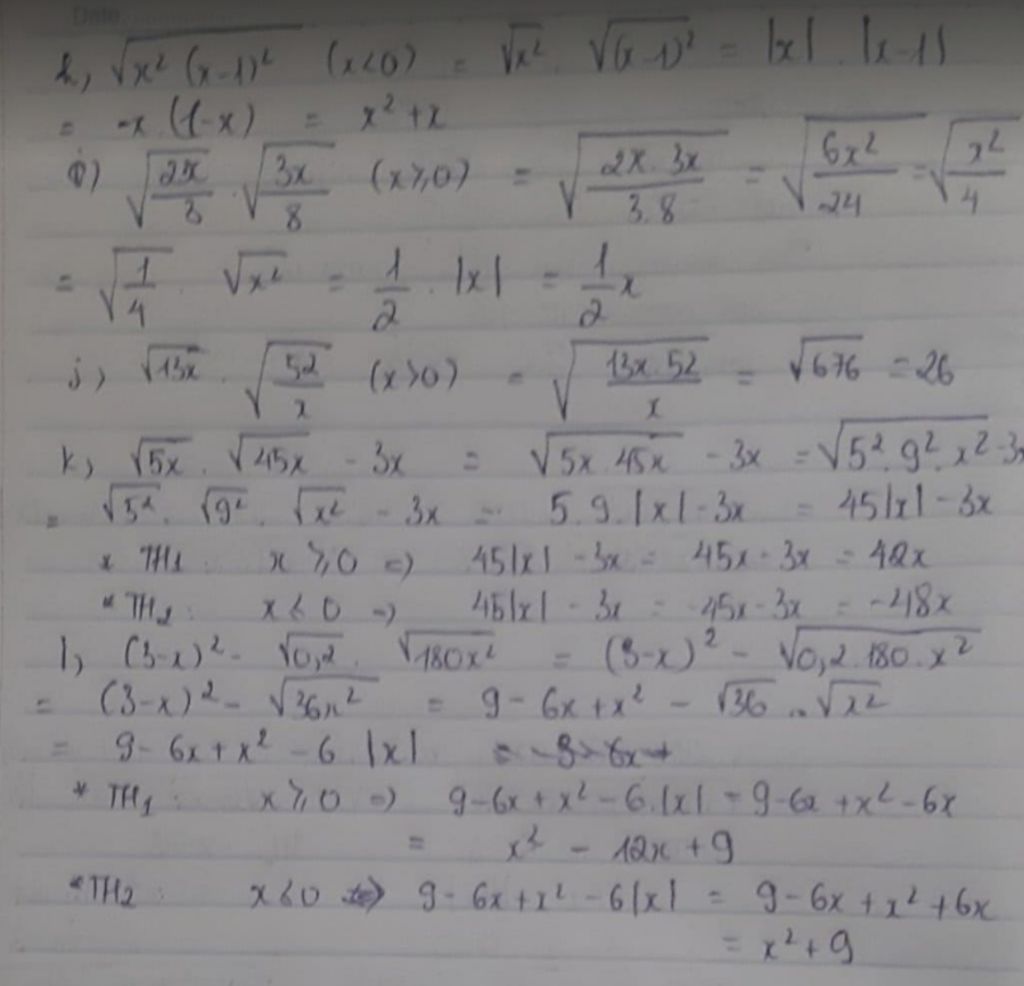 Date
h, √(x² (x-1)²) (x<0) = √x² . √(x-1)² = |x| . |x-1|
= -x . (1-x) = x² + x
i) √(2x/3) . √(3x/8) (x≥0) = √((2x . 3x)/(3.8)) = √(6x²/24) = √(x²/4)
= √(1/4) . √x² = 1/2 . |x| = 1/2 x
j, √13x . √(52/x) (x>0) = √((13x.52)/x) = √676 = 26
k, √5x . √45x - 3x = √(5x.45x) - 3x = √(5².9².x²) - 3x
= √5² . √9² . √x² - 3x = 5.9.|x| - 3x = 45|x| - 3x
* TH1: x ≥ 0 => 45|x| - 3x = 45x - 3x = 42x
* TH2: x < 0 => 45|x| - 3x = -45x - 3x = -48x
l, (3-x)² - √0,2 . √180x² = (3-x)² - √(0,2.180.x²)
= (3-x)² - √36x² = 9 - 6x + x² - √36 . √x²
= 9 - 6x + x² - 6.|x| = -9 - 6x +
* TH1: x ≥ 0 => 9 - 6x + x² - 6.|x| = 9 - 6x + x² - 6x
= x² - 12x + 9
* TH2: x < 0 => 9 - 6x + x² - 6|x| = 9 - 6x + x² + 6x
= x² + 9